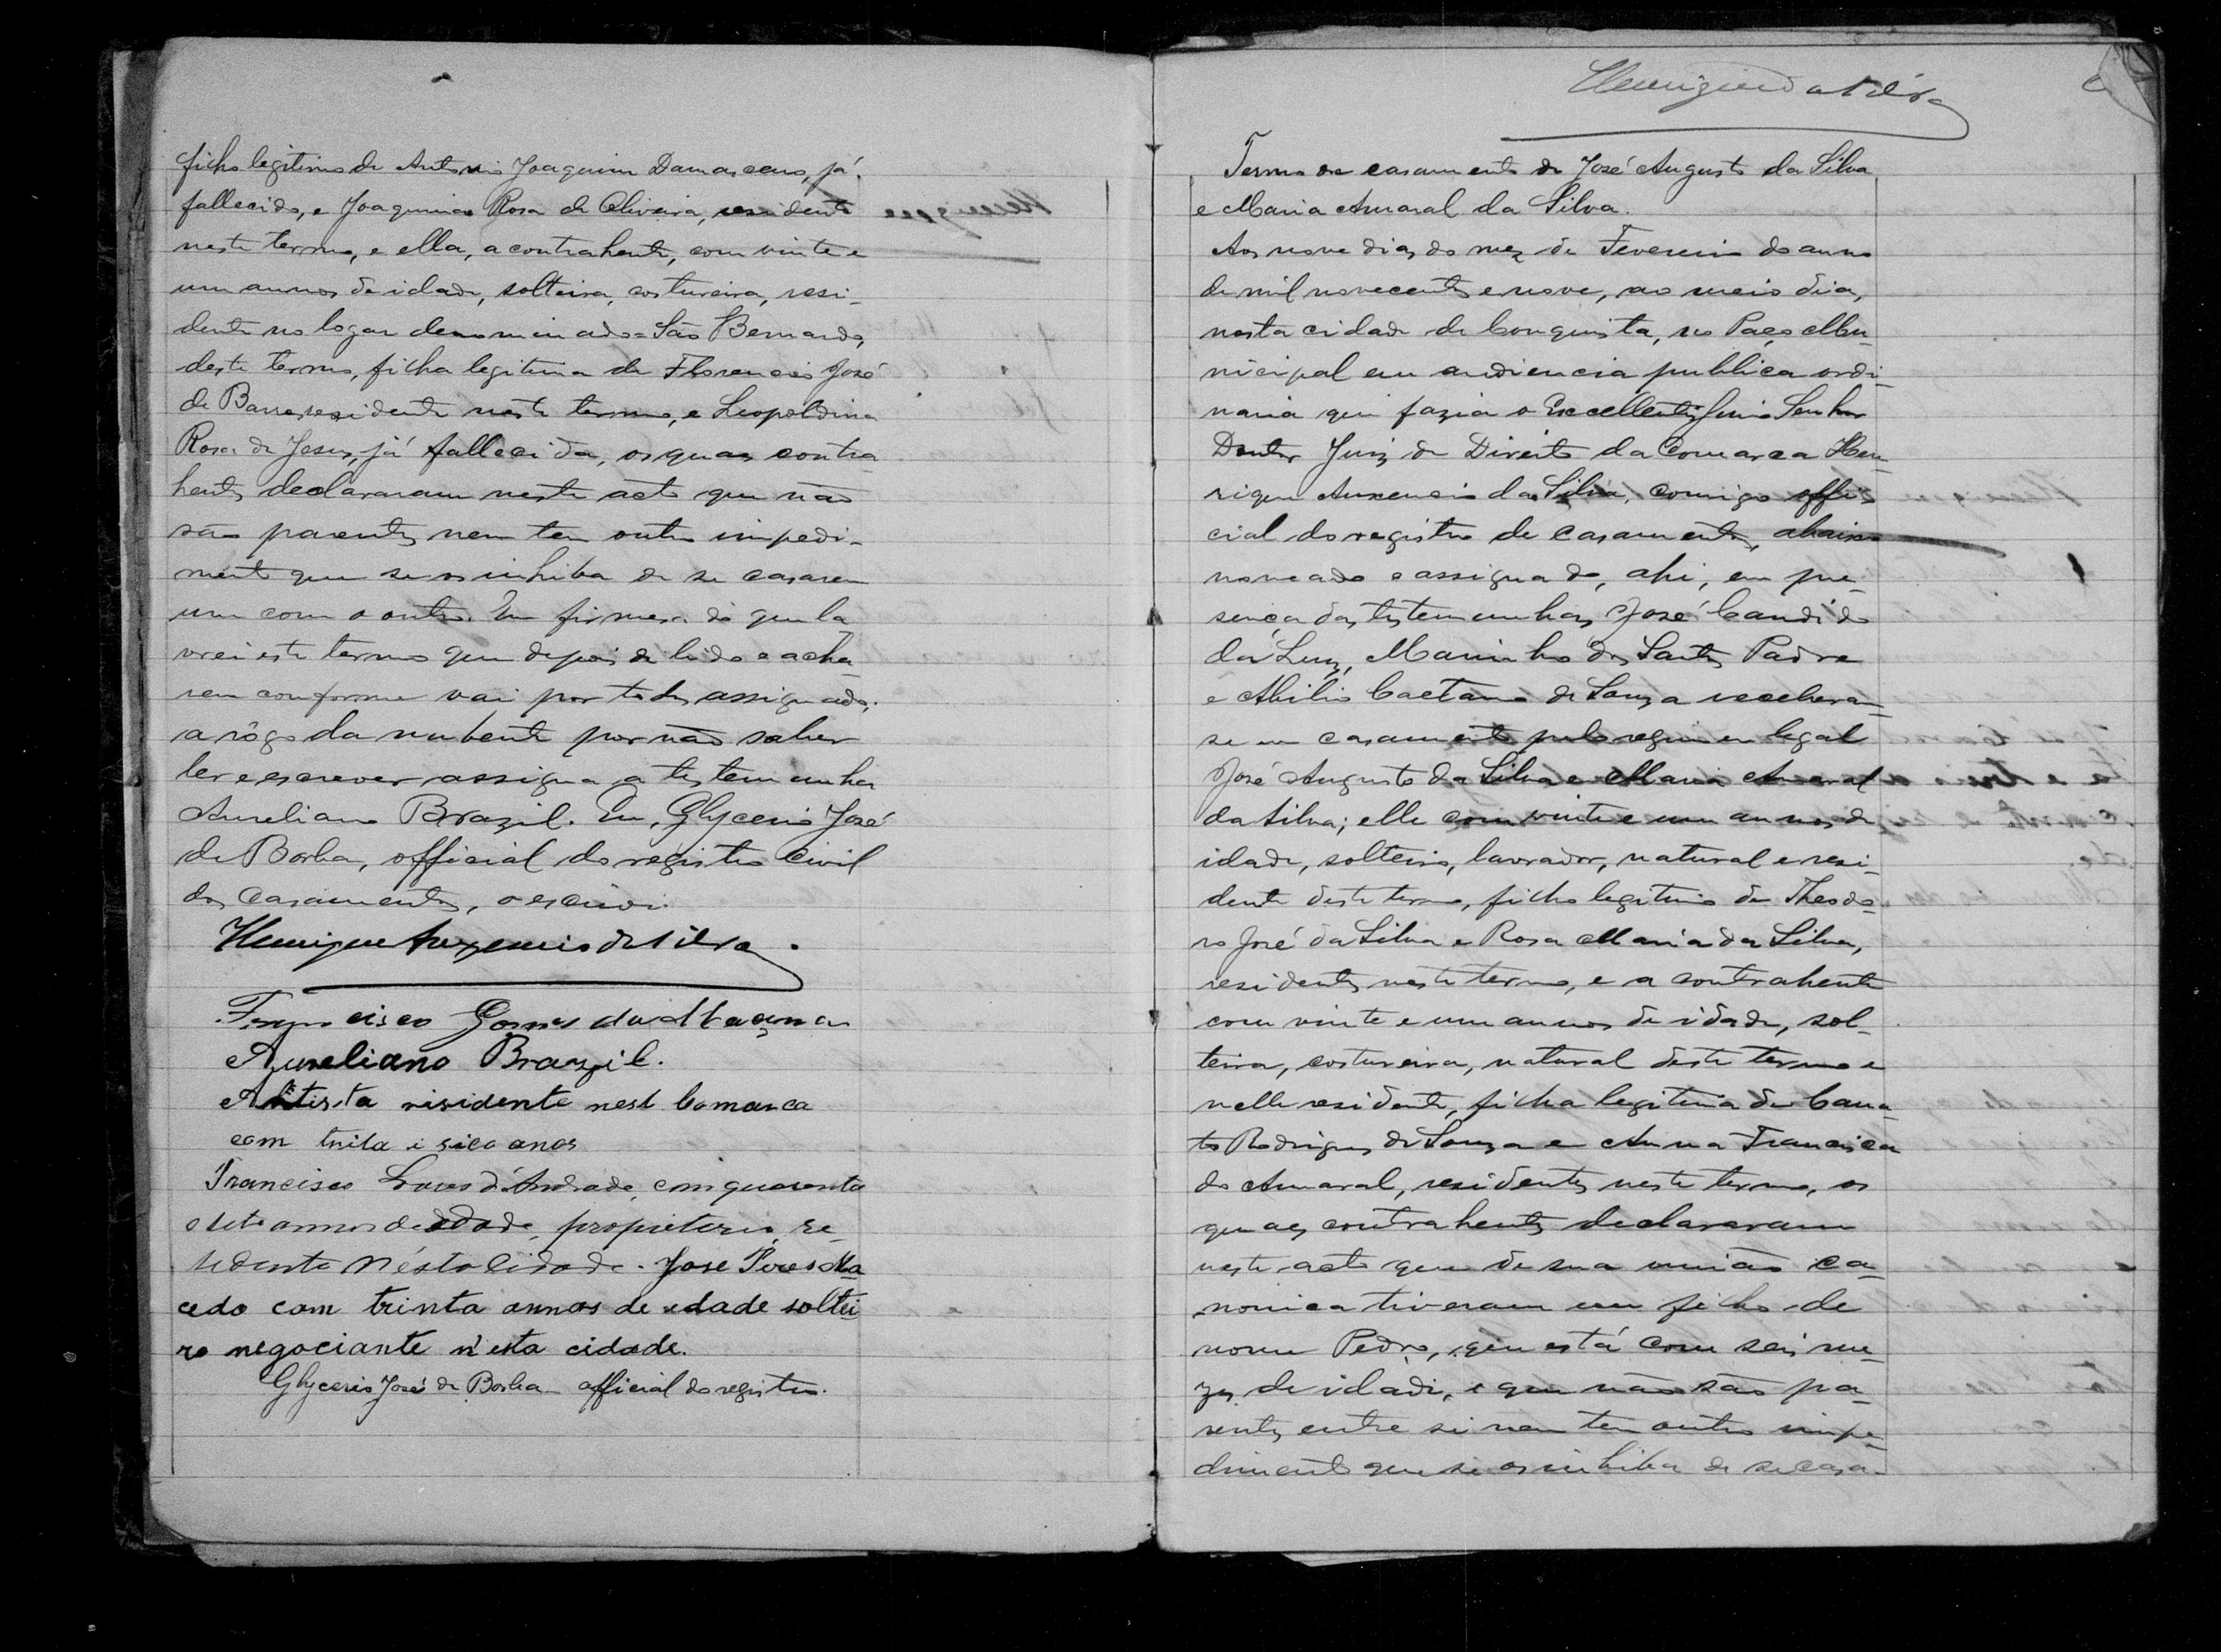 filho legitimo de Antonio Joaquim Damasceno, já
fallecido, e Joaquina Rosa de Oliveira, residente
neste termo, e ella, a contrahente, com vinte e
um annos de idade, solteira, costureira, resi-
dente no logar denominado=São Bernardo,
deste termo, filha legitima de Florencio José
de Barros residente neste termo, e Leopoldina
Rosa de Jesus, já fallecida, os quaes contra-
hentes declararam neste acto que não
são parentes nem tem outro impedi-
mento que se os inhiba de se casarem
um com o outro. Em firmesa do que la
vrei este termo que depois de lido e acha
rem conforme vai por todos assignado;
a rôgo da nubente por não saber
ler e escrever assigna a testemunha
Aureliano Brazil. Eu, Glycerio José
de Borba, official do registro civil
dos casamentos, o escrivi.
Henrique Auxencio da Silva.
Francisco Gomes
Aureliano Brazil.
Artista risidente nest Comarca
com trita i sico anos
Francisco d'Andrade, com quarenta
e sete annos de edade, propieterio, re-
sidente n'esta cidade. José Ma
cedo com trinta annos de edade soltei
ro negociante n'esta cidade.
Glycerio José de Borba official do registro.
Henrique da Silva
Termo de casamento de José Augusto da Silva
e Maria Amaral da Silva.
Aos nove dias do mez de Fevereiro do anno
de mil novecentos e nove, ao meio dia,
nesta cidade de Conquista, no Paço Mu-
nicipal em audiencia publica ordi-
naria que fazia o Excellentissimo Senhor
Doutor Juiz de Direito da Comarca Hen-
rique Auxencio da Silva, comigo offi-
cial do registro de casamentos, abaixo
nomeado e assignado, ahi, em pre-
sença das testemunhas José Candido
da Luz, Marinho dos Santos Padre
e Abilio Caetano de Souza receberam
se em casamento pelo regimen legal
José Augusto da Silva e Maria Amaral
da Silva; elle com vinte e um annos de
idade, solteiro, lavrador, natural e resi-
dente deste termo, filho legitimo de Theodo-
ro José da Silva e Rosa Maria da Silva,
residentes neste termo, e a contrahente
com vinte e um annos de idade, sol-
teira, costureira, natural deste termo e
nelle residente, filha legitima de
Rodrigues de Souza e Anna Francisca
do Amaral, residentes neste termo, os
quaes contrahentes declararam
neste acto que de sua união ca-
nonica tiveram um filho de
nome Pedro, que está com seis me-
zes de idade, e que não são pa-
rentes entre si nem tem outro impe-
dimento que se os inhiba de se casa-